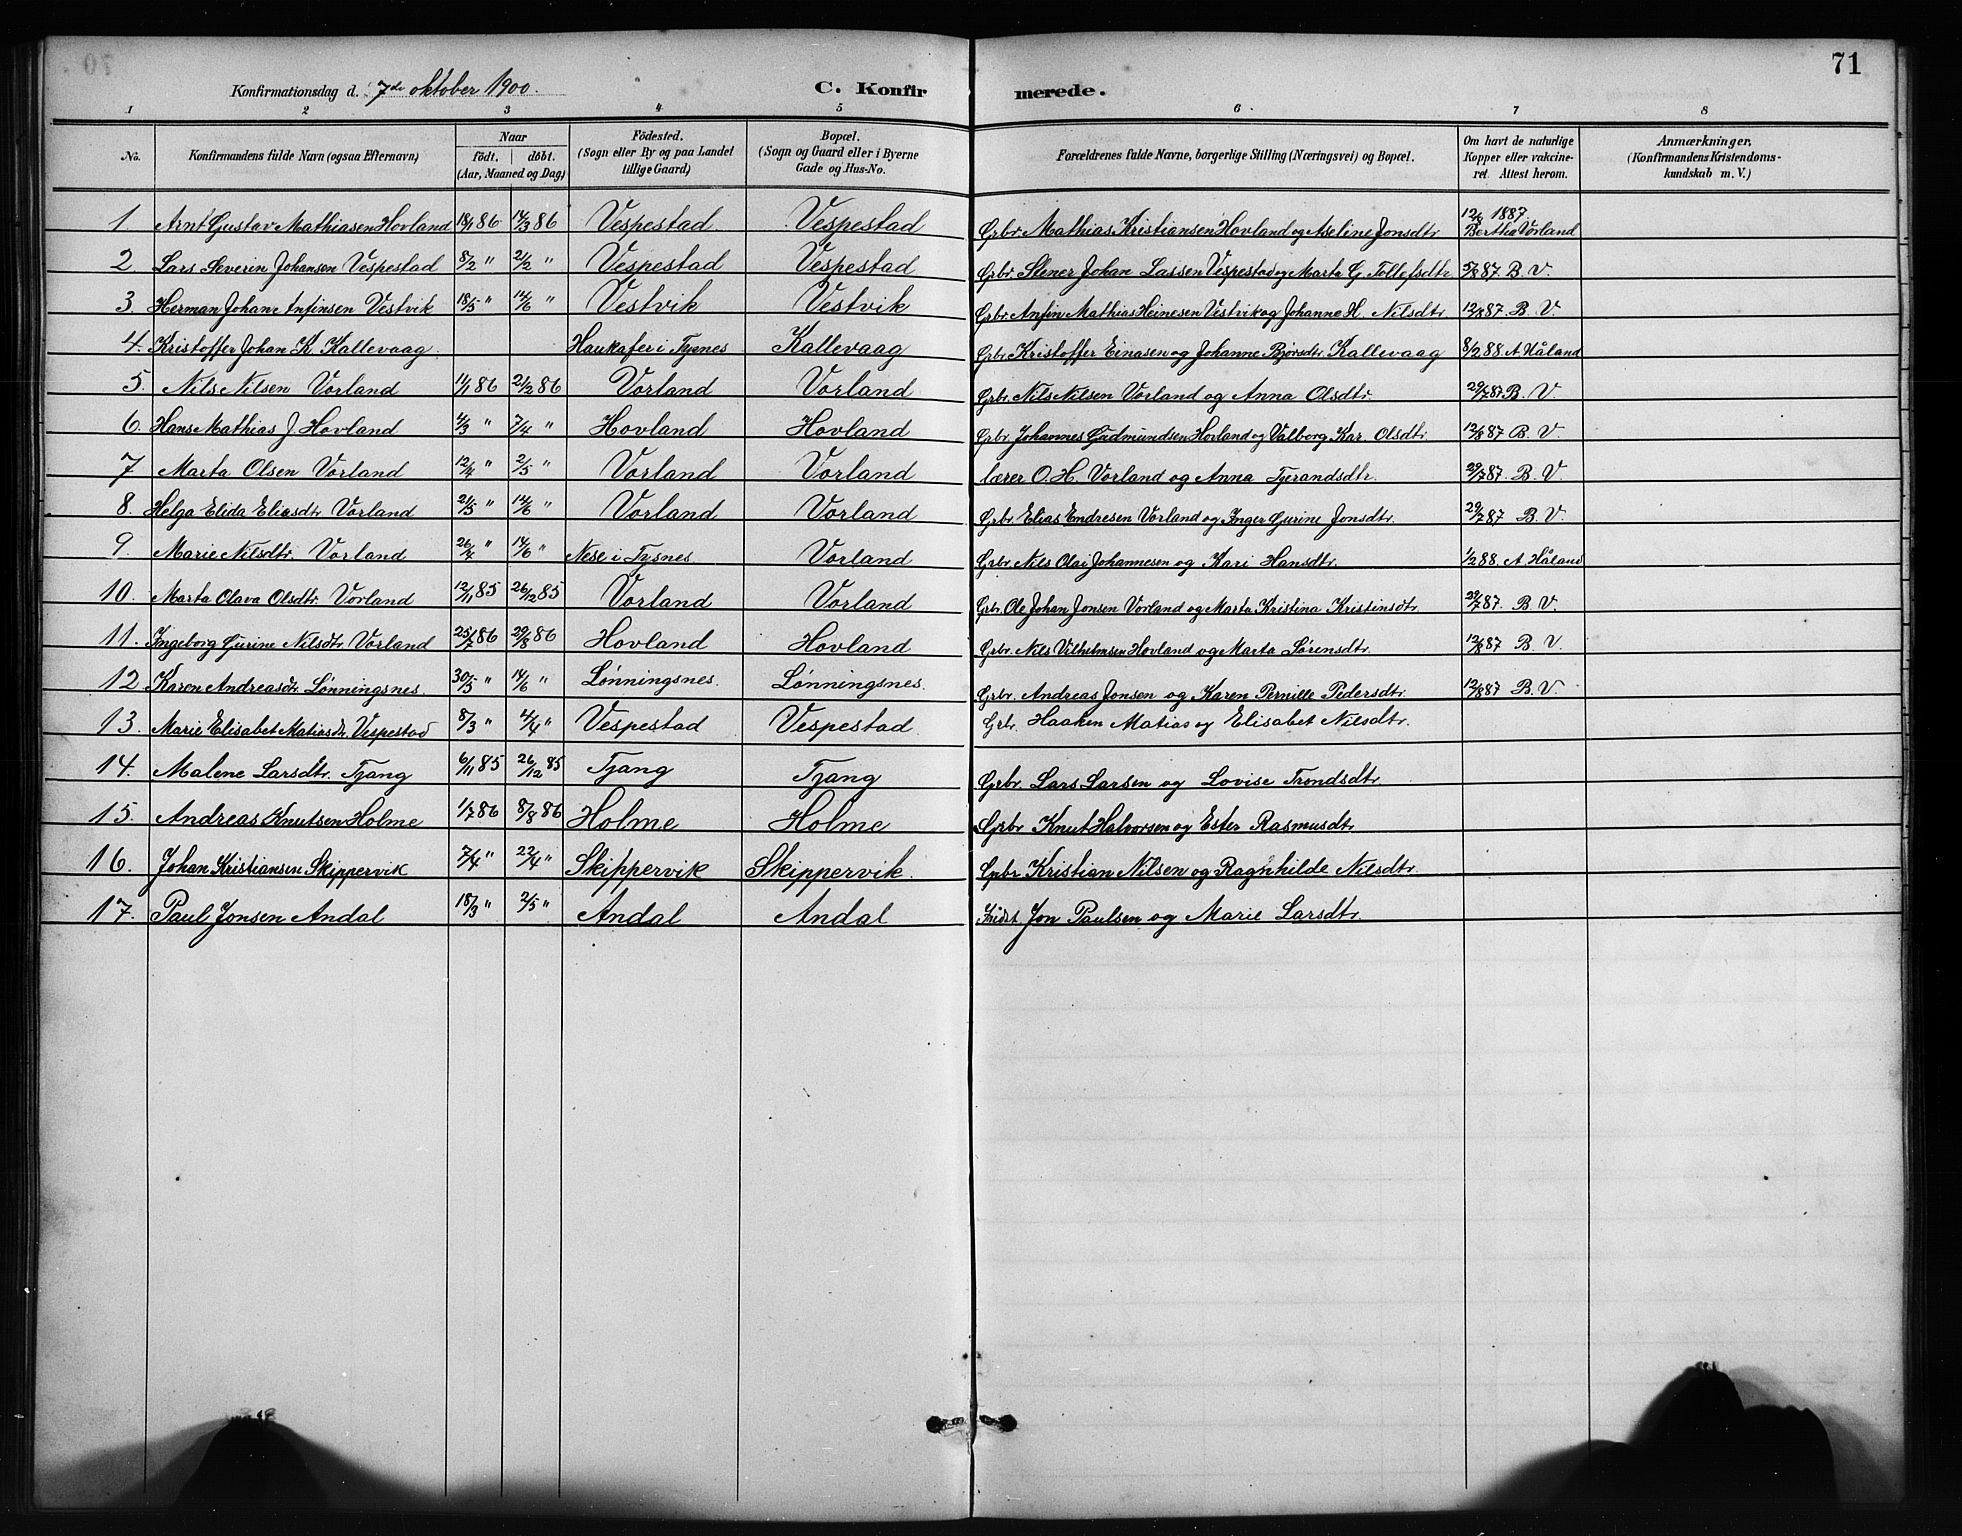 71
Konfirmationsdag d. 7de oktober 1900. C. Konfirmerede.
1 2 3 4 5 6 7 8
No. Konfirmandens fulde Navn (ogsaa Efternavn) Naar födt. döbt. (Aar, Maaned og Dag) Födested. (Sogn eller By og paa Landet tillige Gaard) Bopæl. (Sogn og Gaard eller i Byerne Gade og Hus-No. Forældrenes fulde Navne, borgerlige Stilling (Næringsvei) og Bopæl. Om havt de naturlige Kopper eller vakcineret. Attest herom. Anmærkninger, (Konfirmandens Kristendomskundskab m. V.)
1. Arnt Gustav Mathiasen Hovland 18/1 86 14/3 86 Vespestad Vespestad Grbr. Mathias Kristiansen Hovland og Aseline Jonsdtr 12/8 1887. Bertha Vorland
2 Lars Severin Johansen Vespestad 8/2 " 21/2 " Vespestad Vespestad Grbr. Stener Johan Lassen Vespestad og Marta G. Tollefsdtr 5/8 87. B. V.
3. Herman Johan Anfinsen Vestvik 18/5 " 14/6 " Vestvik Vestvik Grbr. Anfin Mathias Heinesen Vestvik og Johanne H. Nilsdtr 12/8 87. B. V.
4. Kristoffer Johan K. Kallevaag Haukafer i Tysnes Kallevaag Grbr. Kristoffer Einasen og Johanne Bjørsdtr. Kallevaag 8/2 88. A Håland
5. Nils Nilsen Vorland 11/1 86 21/2 86 Vorland Vorland Grbr. Nils Nilsen Vorland og Anna Olsdtr. 29/7 87 B. V.
6. Hans Mathias J. Hovland 4/3 " 7/4 " Hovland Hovland Grbr. Johannes Gudmundsen Hovland og Valborg Kar. Olsdtr. 12/8 87 B. V.
7 Marta Olsen Vorland 12/4 " 2/5 " Vorland Vorland lærer O. H. Vorland og Anna Tjerandsdtr. 29/7 87. B. V.
8. Helga Elida Eliasdtr Vorland 21/5 " 14/6 " Vorland Vorland Grbr. Elias Endresen Vorland og Inger Gurine Jonsdtr. 29/7 87 B. V.
9. Marie Nilsdtr. Vorland 26/4 " 14/6 " Nese i Tysnes Vorland Grbr. Nils Olai Johannesen og Kari Hansdtr. 1/2 88. A Håland
10. Marta Olava Olsdtr. Vorland 12/11 85 26/12 85 Vorland Vorland Grbr. Ole Johan Jonsen Vorland og Marta Kristina Kristinsdtr 29/7 87. B. V.
11. Ingeborg Gurine Nilsdtr. Vorland 25/7 86 29/8 86 Hovland Hovland Grbr. Nils Vilhelmsen Hovland og Marta Sørensdtr. 12/8 87 B. V.
12 Karen Andreasdtr. Lønningsnes. 30/5 " 14/6 " Lønningsnes. Lønningsnes. Grbr. Andreas Jonsen og Karen Pernille Pedersdtr. 12/8 87 B. V.
13. Marie Elisabet Matiasdtr. Vespestad 8/3 " 4/4 " Vespestad Vespestad. Grbr. Haaken Matias og Elisabet Nilsdtr.
14. Malene Larsdtr. Tzang 6/11 85 26/12 85 Tzang Tzang Grbr. Lars Larsen og Lovise Trondsdtr.
15. Andreas Knutsen Holme 1/7 86 8/8 86 Holme Holme Grbr Knut Halvorsen og Ester Rasmusdtr.
16. Johan Kristiansen Skippervik 7/4 " 22/4 " Skippervik Skippervik. Grbr. Kristian Nilsen og Ragnhilde Nilsdtr.
17. Paul Jonsen Andal 18/3 " 2/5 " Andal Andal Jon Paulsen og Marie Larsdtr.